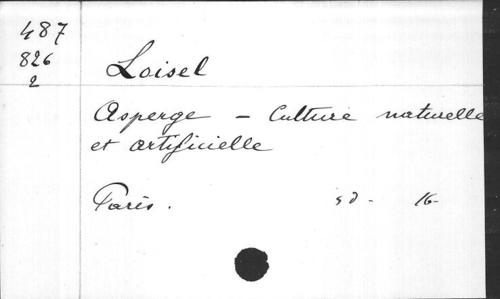 487
826
2
Loisel
Asperge - Culture naturelle
et artificielle
Paris. sd - 16-